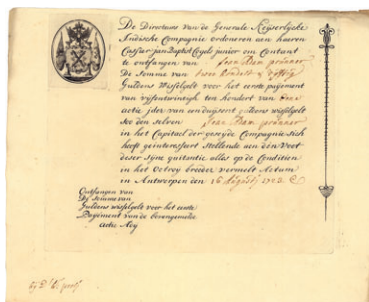 De Directeurs van de Generale Keyserlycke
Indische Compagnie ordoneren aen heeren
Casper Jan Baptist Cogels junior om Contant
te ontfangen van Joan Dam
De Somme van twee hondert &
Guldens Wisselgelt voor het eerste payement
van vyfentwintigh ten hondert van
actie jder van een duysent guldens wisselgelt
die den selven Joan Dam
in het Capitael der geseyde Compagnie sich
heeft geinteresseert Stellende aen den Voet
deser syne quitantie alles op de Conditien
in het Octroy breeder vermelt Actum
in Antwerpen den 16 Augusti 1723
Ontfangen van
De somme van
Guldens wisselgelt voor het eerste
Payement van de bovengemelde
actie